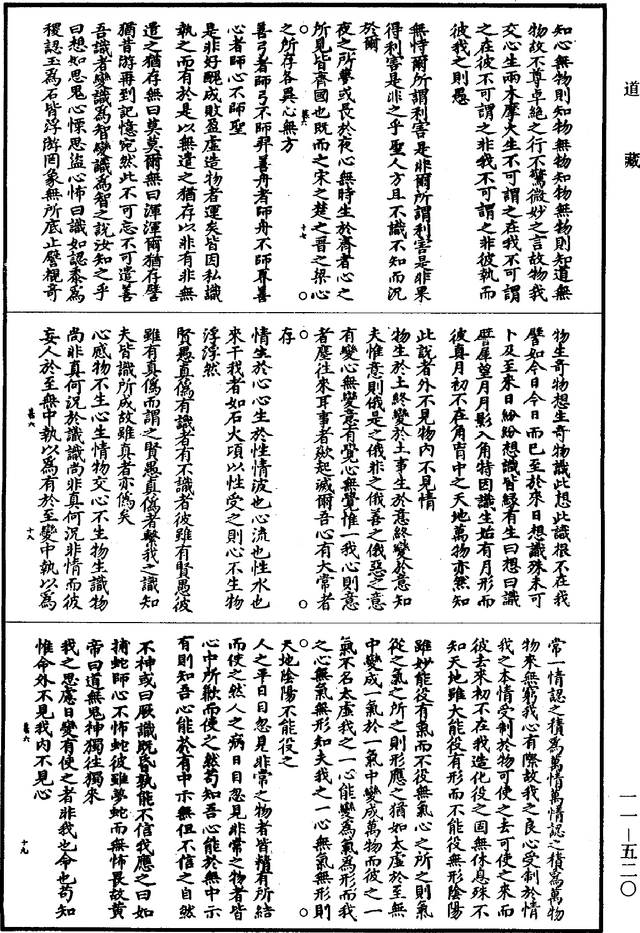 道藏
知心無物則知物無物知物無物則知道無
物故不尊卓絕之行不驚微妙之言故物我
交心生兩木摩火生不可謂之在我不可謂
之在彼不可謂之非我不可謂之非彼執而
彼我之則愚
無恃爾所謂利害是非爾所謂利害是非果
得利害是非之乎聖人方且不識不知而況
於爾
夜之所夢或長於夜心無時生於齊者心之
所見皆齊國也既而之宋之楚之晉之梁心
之所存各異心無方
甚六 十七
善弓者師弓不師羿善舟者師舟不師奡善
心者師心不師聖
是非好醜成敗盈虛造物者運矣皆因私識
執之而有於是以無遣之猶存以非有非無
遣之猶存無曰莫莫爾無曰渾渾爾猶存譬
猶昔游再到記憶宛然此不可忘不可遣善
吾識者變識為智變識為智之說汝知之乎
曰想如思鬼心慄思盜心怖曰識如認黍為
稷認玉為石皆浮游罔象無所底止譬覩奇
物生奇物想生奇物識此想此識根不在我
譬如今日今日而已至於來日想識殊未可
卜及至來日紛紛想識皆緣有生曰想曰識
譬犀望月月影入角特因識生始有月形而
彼真月初不在角胷中之天地萬物亦然知
此說者外不見物內不見情
物生於土終變於土事生於意終變於意知
夫惟意則俄是之俄非之俄善之俄惡之意
有變心無變意有覺心無覺惟一我心則意
者塵往來耳事者歘起滅爾吾心有大常者
存
情生於心心生於性情波也心流也性水也
來干我者如石火頃以性受之則心不生物
浮浮然
賢愚真偽有識者有不識者彼雖有賢愚彼
雖有真偽而謂之賢愚真偽者繫我之識知
夫皆識所成故雖真者亦偽矣
心感物不生心生情物交心不生物生識物
尚非真何況於識識尚非真何況非情而彼
妄人於至無中執以為有於至變中執以為
甚六 十八
常一情認之積為萬情萬情認之積為萬物
物來無窮我心有際故我之良心受制於情
我之本情受制於物可使之去可使之來而
彼去來初不在我造化役之固無休息殊不
知天地雖大能役有形而不能役無形陰陽
雖妙能役有氣而不役無氣心之所之則氣
從之氣之所之則形應之猶如太虛於至無
中變成一氣於一氣中變成萬物而彼之一
氣不名太虛我之一心能變為氣為形而我
之心無氣無形知夫我之一心無氣無形則
天地陰陽不能役之
人之平日目忽見非常之物者皆精有所結
而使之然人之病日目忽見非常之物者皆
心中所歉而使之然苟知吾心能於無中示
有則知吾心能於有中示無但不信之自然
不神或曰厥識既昏孰能不信我應之曰如
捕蛇師心不怖蛇彼雖夢蛇而無怖畏故黃
帝曰道無鬼神獨往獨來
我之思慮日變有使之者非我也命也苟知
惟命外不見我內不見心
甚六 十九
一一—五二〇